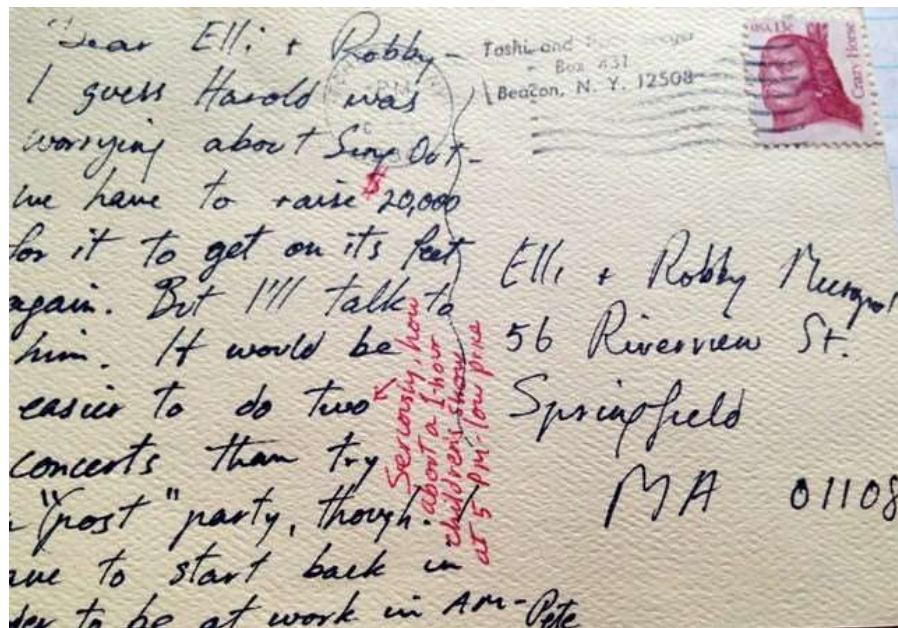 Dear Elli + Robby -
I guess Harold was
worrying about Sing Out -
we have to raise $20,000
for it to get on its feet
again. But I'll talk to
him. It would be
easier to do two
concerts than try
"post" party, though. I
to start back in
to be at work in AM - Pete
Seriously, how
about a 1-hour
children's show
at 5 PM - low price
Toshi and
Box 431
Beacon, N. Y. 12508
PM
USA 13c
Crazy Horse
Elli + Robby Meeropol
56 Riverview St.
Springfield
MA 01108